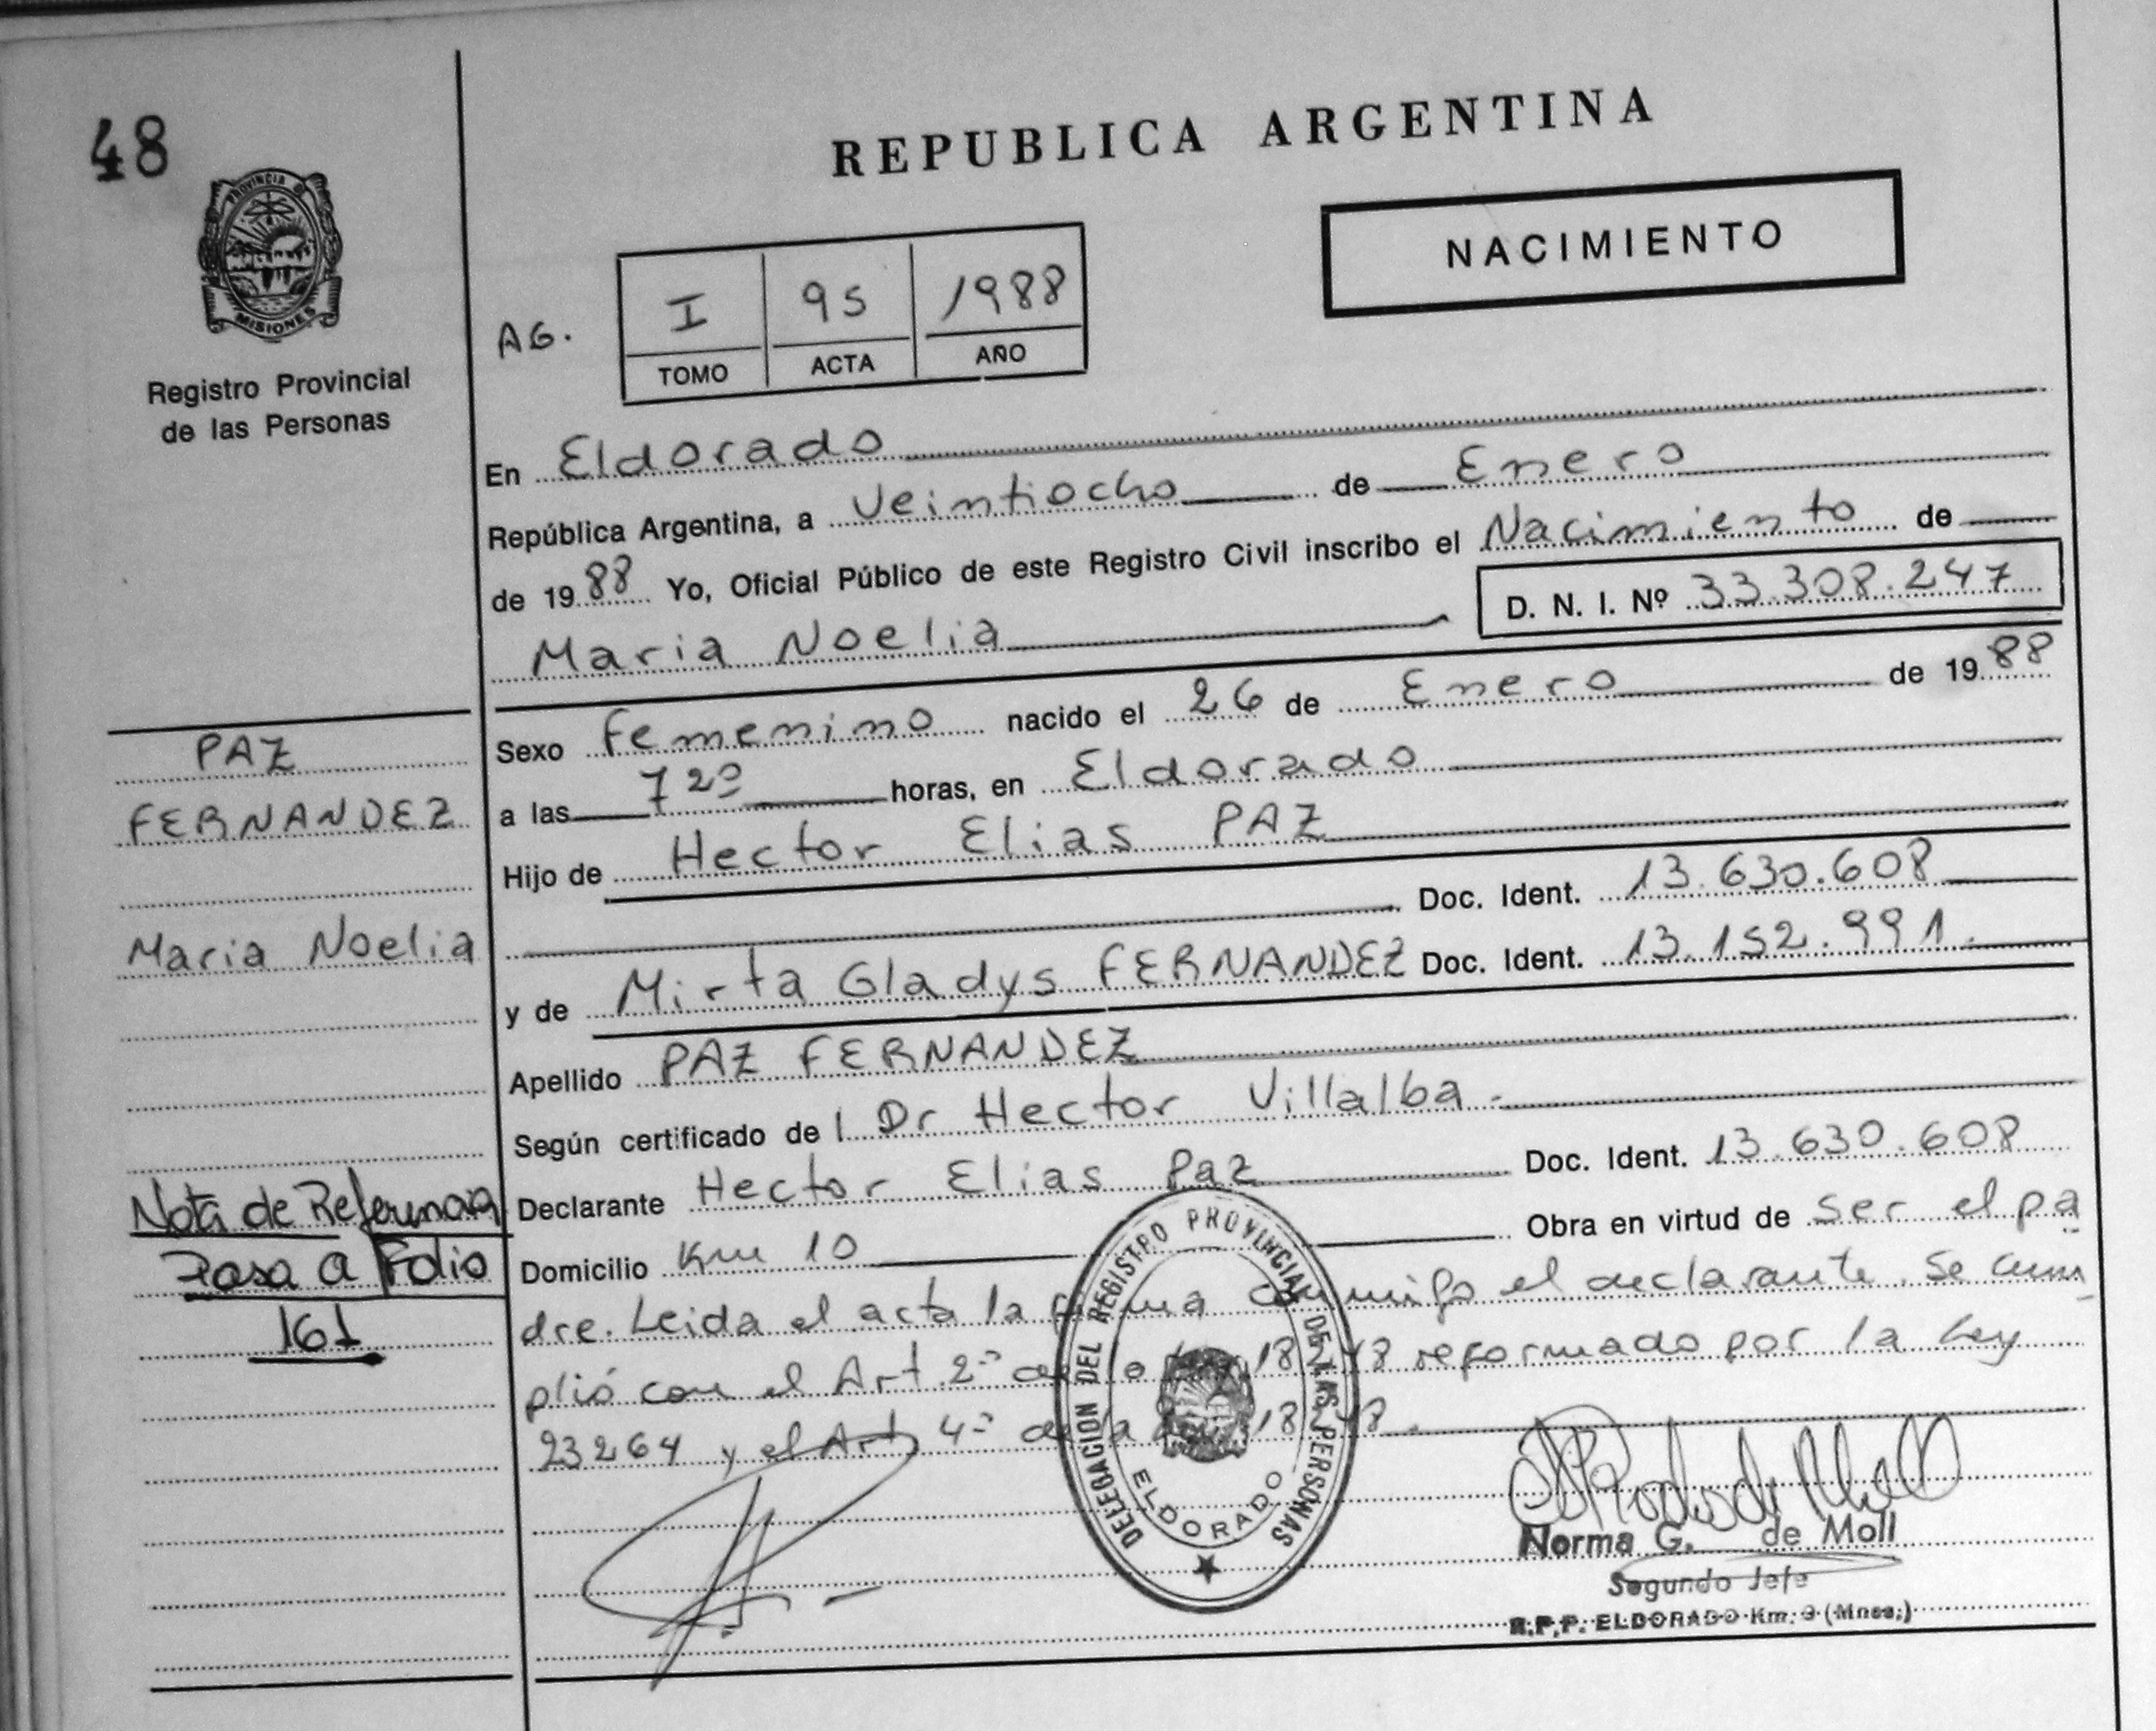 48
REPUBLICA ARGENTINA
NACIMIENTO
PROVINCIA D
MISIONES
Registro Provincial
de las Personas
AG.
I 95 1988
TOMO ACTA AÑO
En Eldorado
República Argentina, a Veintiocho de Enero
de 1988 Yo, Oficial Público de este Registro Civil inscribo el Nacimiento de
Maria Noelia D. N. I. Nº 33.308.247
Sexo Femenino nacido el 26 de Enero de 1988
a las 7 20 horas, en Eldorado
Hijo de Hector Elias PAZ
Doc. Ident. 13.630.608
y de Mirta Gladys FERNANDEZ Doc. Ident. 13.152.991.
Apellido PAZ FERNANDEZ
Según certificado de l Dr Hector Villalba -
Declarante Hector Elias Paz Doc. Ident. 13.630.608
Domicilio Km 10 Obra en virtud de ser el pa
dre. Leida el acta la firma conmigo el declarante. Se cum
plió con el Art 2º de la Ley 18248 reformado por la Ley
23264 y el Art 4º de la Ley 18248.
PAZ
FERNANDEZ
Maria Noelia
Nota de Referencia
Pasa a Folio
161
DELEGACION DEL REGISTRO PROVINCIAL DE LAS PERSONAS
ELDORADO
Norma G. de Moll
Segundo Jefe
R.P.P. ELDORADO Km. 9 (Mnes.)